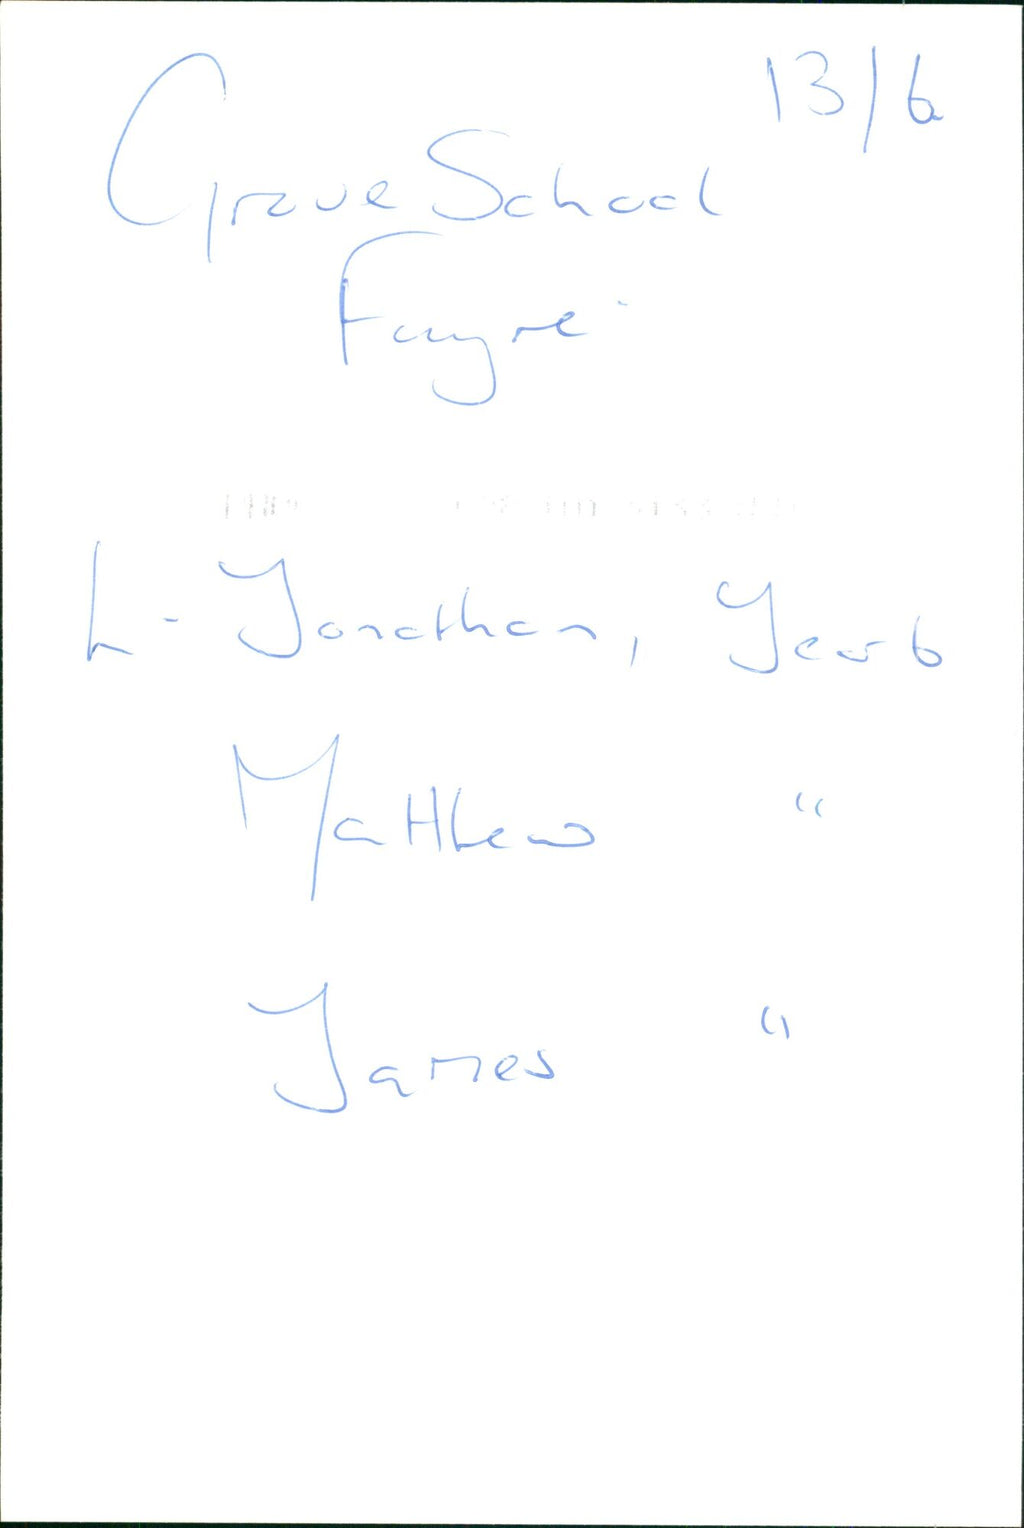 13/6
Grove School
Fayre
L - Jonathan, Year 6
Matthew "
James "